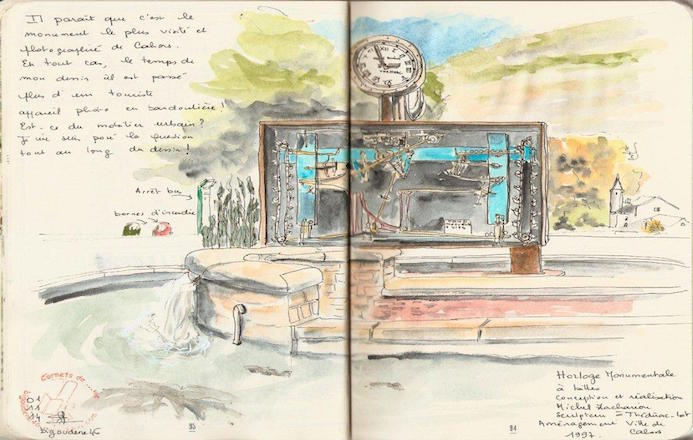 Il paraît que c'est le
monument le plus visité et
photographié de Cahors.
En tout cas, le temps de
mon dessin il est passé
plus d'un touriste
appareil photo en bandoulière !
Est-ce du mobilier urbain ?
Je me suis posé la question
tout au long du dessin !
Arrêt bus
bornes d'incendie
XII
Horloge Monumentale
à billes
conception et réalisation
Michel Zachariou
Sculpteur = Thédirac. Lot
Aménagement Ville de
Cahors
1997
Carnets de
01
11
14
Bigoudène46
83
84